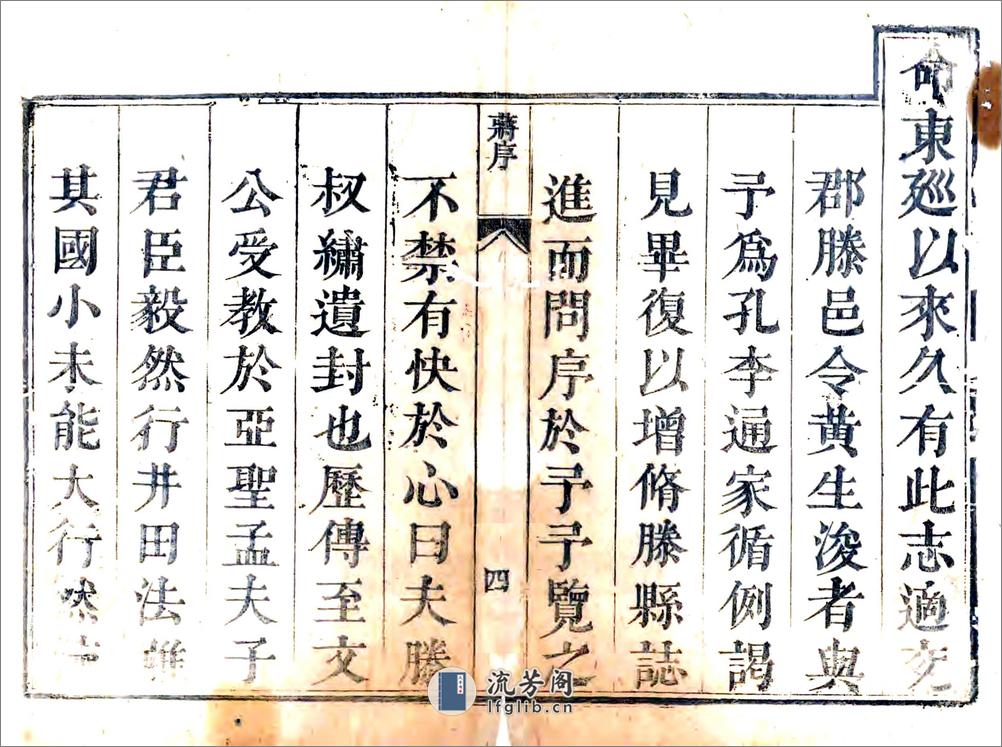 命東廵以來久有此志適兗
郡滕邑令黃生浚者與
予爲孔李通家循例謁
見畢復以增脩滕縣誌
進而問序於予予覽之
蔣序
四
不禁有快於心曰夫滕
叔繡遺封也歷傳至文
公受教於亞聖孟夫子
君臣毅然行井田法雖
其國小未能大行然
流芳阁
lfglib.cn